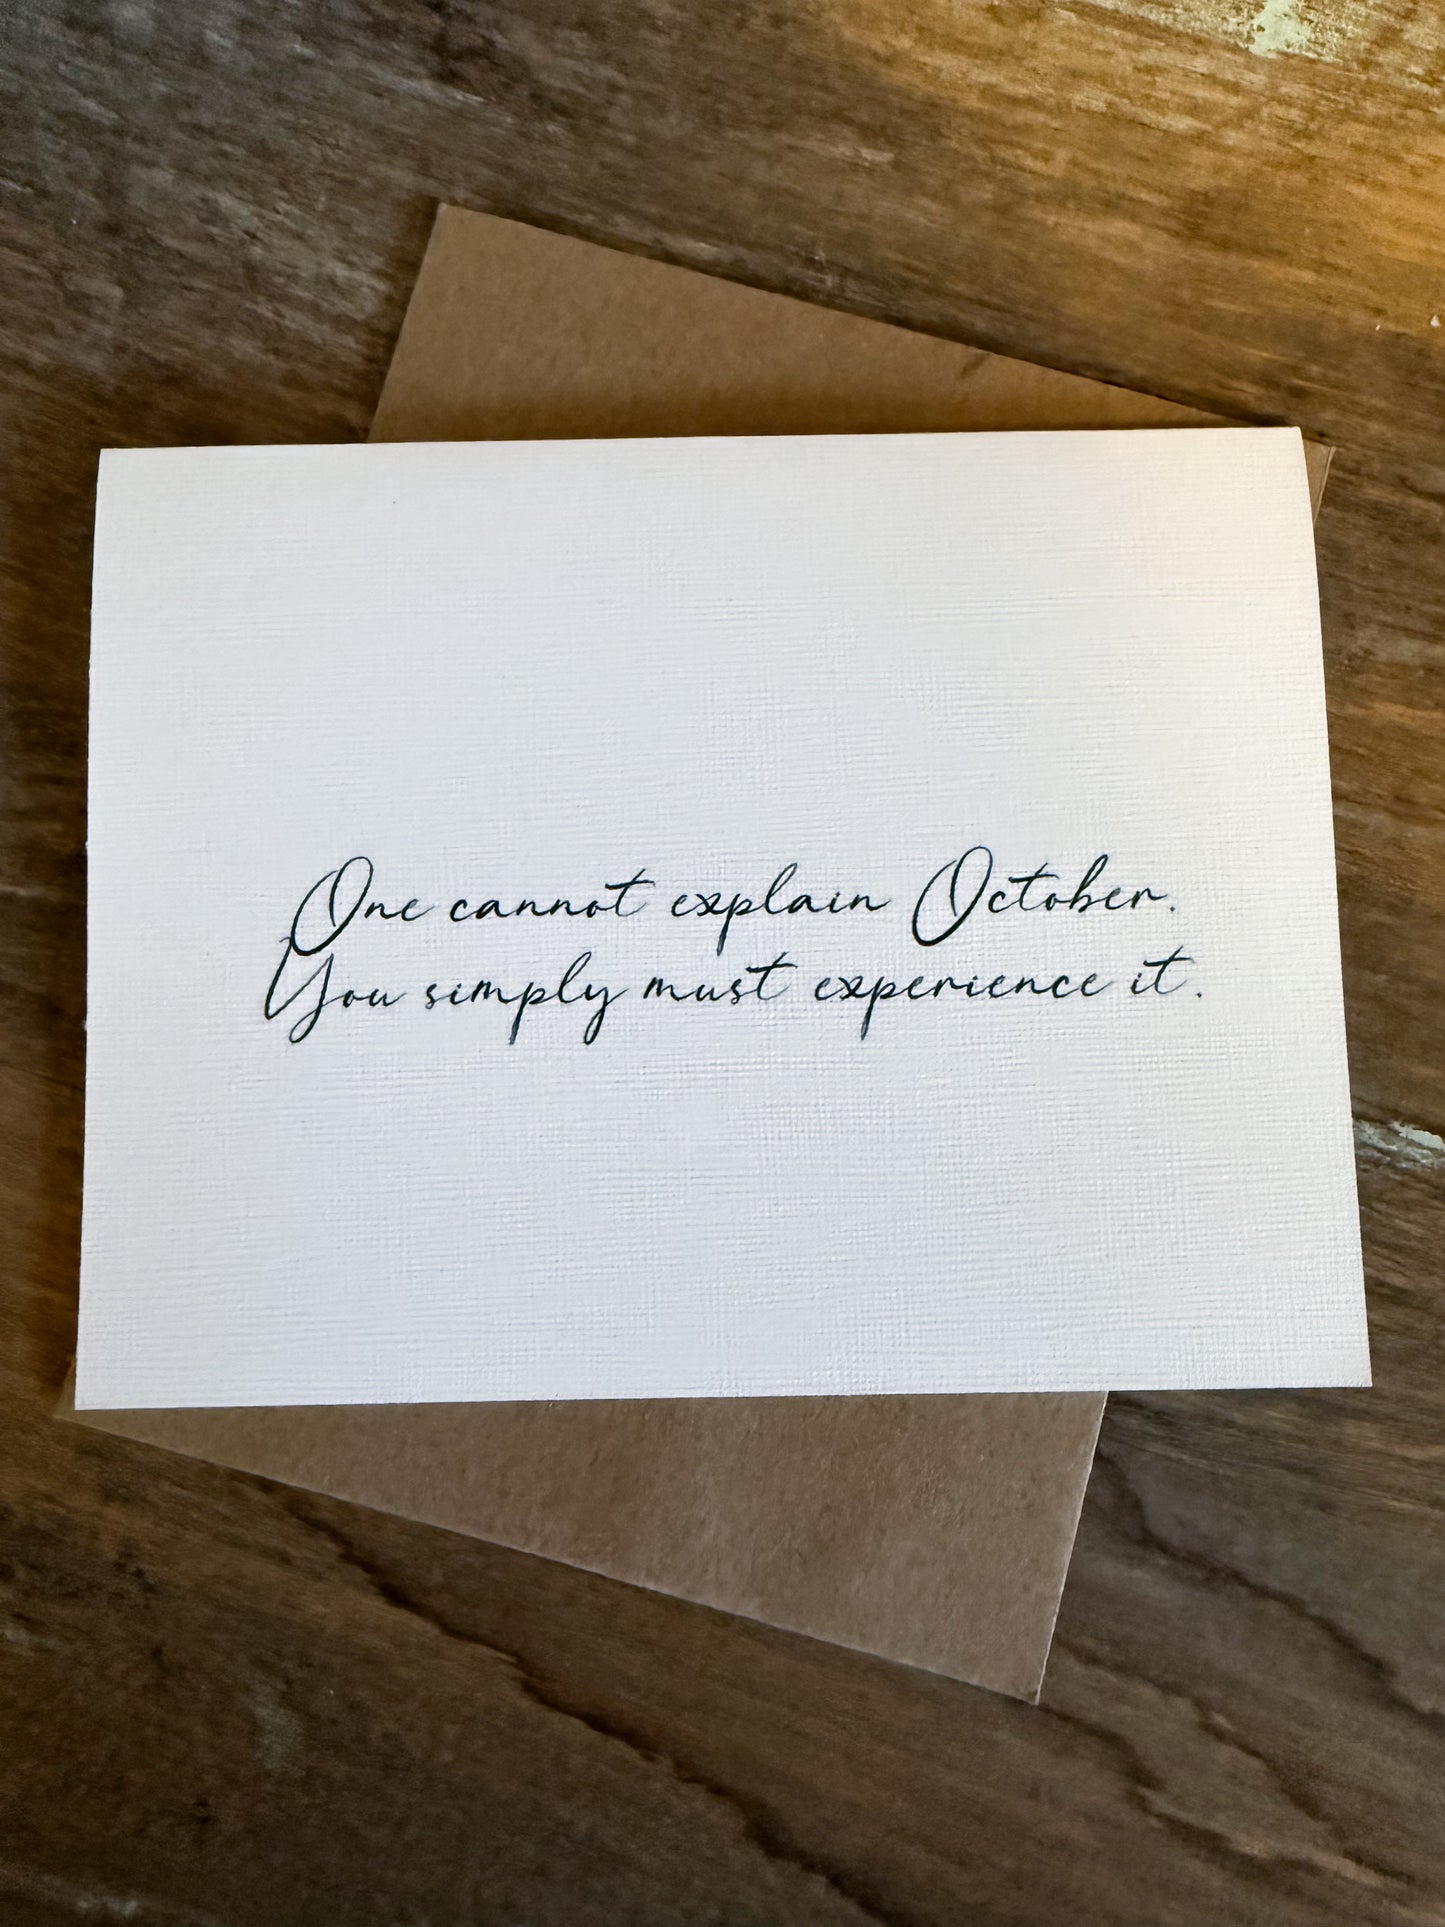 One cannot explain October.
You simply must experience it.